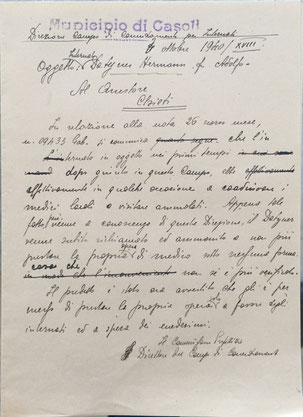 Municipio di Casoli
Direzione Campo di Concentramento per Internati
8bre 1940/XVIII
Oggetto: Internato Datyner Hermann f. Adolfo-
Al Questore
Chieti
In relazione alla nota 26 corr. mese,
n. 09433 Gab. si comunica quanto segue: che l'in
ternato in oggetto nei primi tempi
dopo giunto in questo Campo, ebbe effettivamente
effettivamente in qualche occasione a coadiuvare i
medici locali a visitare ammalati. Appena tale
fatto venne a conoscenza di questa Direzione, il Datyner
venne subito richiamato ed ammonito a non più
prestare la propria opera di medico sotto nessuna forma.
cosa che non si è più verificata.
Il predetto è stato ora avvertito che gli è per
messo di prestare la propria opera solo a favore degli
internati ed a spese dei medesimi.
Il Commissario Prefettizio
Direttore del Campo di Concentrament